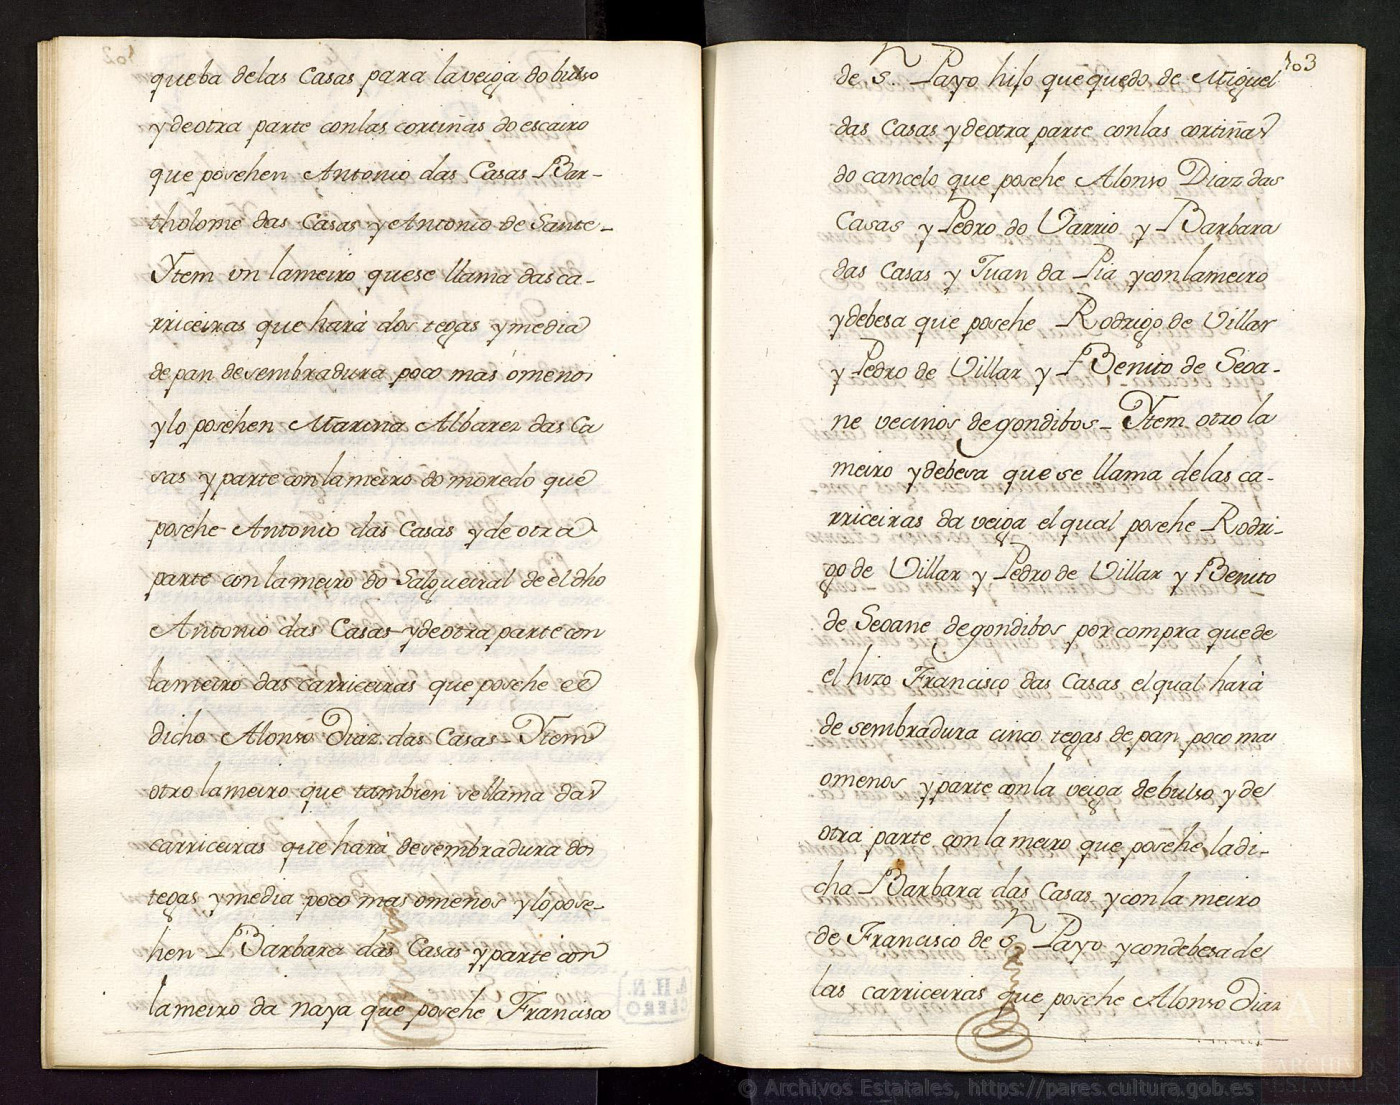 queba delas Casas para laveiga do bulso
y deotra parte conlas cortiñas do escairo
que posehen Antonio das Casas Bar-
tholome das Casas y Antonio de Sante-
Ytem un lameiro quese llama das ca-
rriceiras que hará dos tegas y media
de pan desembradura poco mas ómenos
y lo posehen Marina Albarez das Ca
sas y parte con lameiro do moredo que
posehe Antonio das Casas y de otra
parte con lameiro do Salgueiral de el dho
Antonio das Casas y deotra parte con
lameiro das carriceiras que posehe ee
dicho Alonso Diaz das Casas - Ytem
otro lameiro que tambien sellama das
carriceiras que hará desembradura dos
tegas y media poco mas omenos y lo pose-
hen Barbara das Casas y parte con
lameiro da naya que posehe Francisco
A.H.N.
CLERO
103
de Sn. Payo hijo que quedo de Miguel
das Casas y deotra parte conlas cortiñas
do cancelo que posehe Alonso Diaz das
Casas y Pedro do Varrio y Barbara
das Casas y Juan da Pia y con lameiro
y debesa que posehe Rodrigo de Villar
y Pedro de Villar y Benito de Seoa-
ne vecinos de gondibos - Ytem otro la
meiro y debesa que se llama de las ca-
rriceiras da veiga el qual posehe Rodri-
go de Villar y Pedro de Villar y Benito
de Seoane de gondibos por compra que de
el hizo Francisco das Casas el qual hará
de sembradura cinco tegas de pan poco mas
omenos y parte con la veiga de bulso y de
otra parte con la meiro que posehe la di-
cha Barbara das Casas y con la meiro
de Francisco de Sn. Payo y con debesa de
las carriceiras que posehe Alonso Diaz
© Archivos Estatales, https://pares.cultura.gob.es
ARCHIVOS
ESTATALES